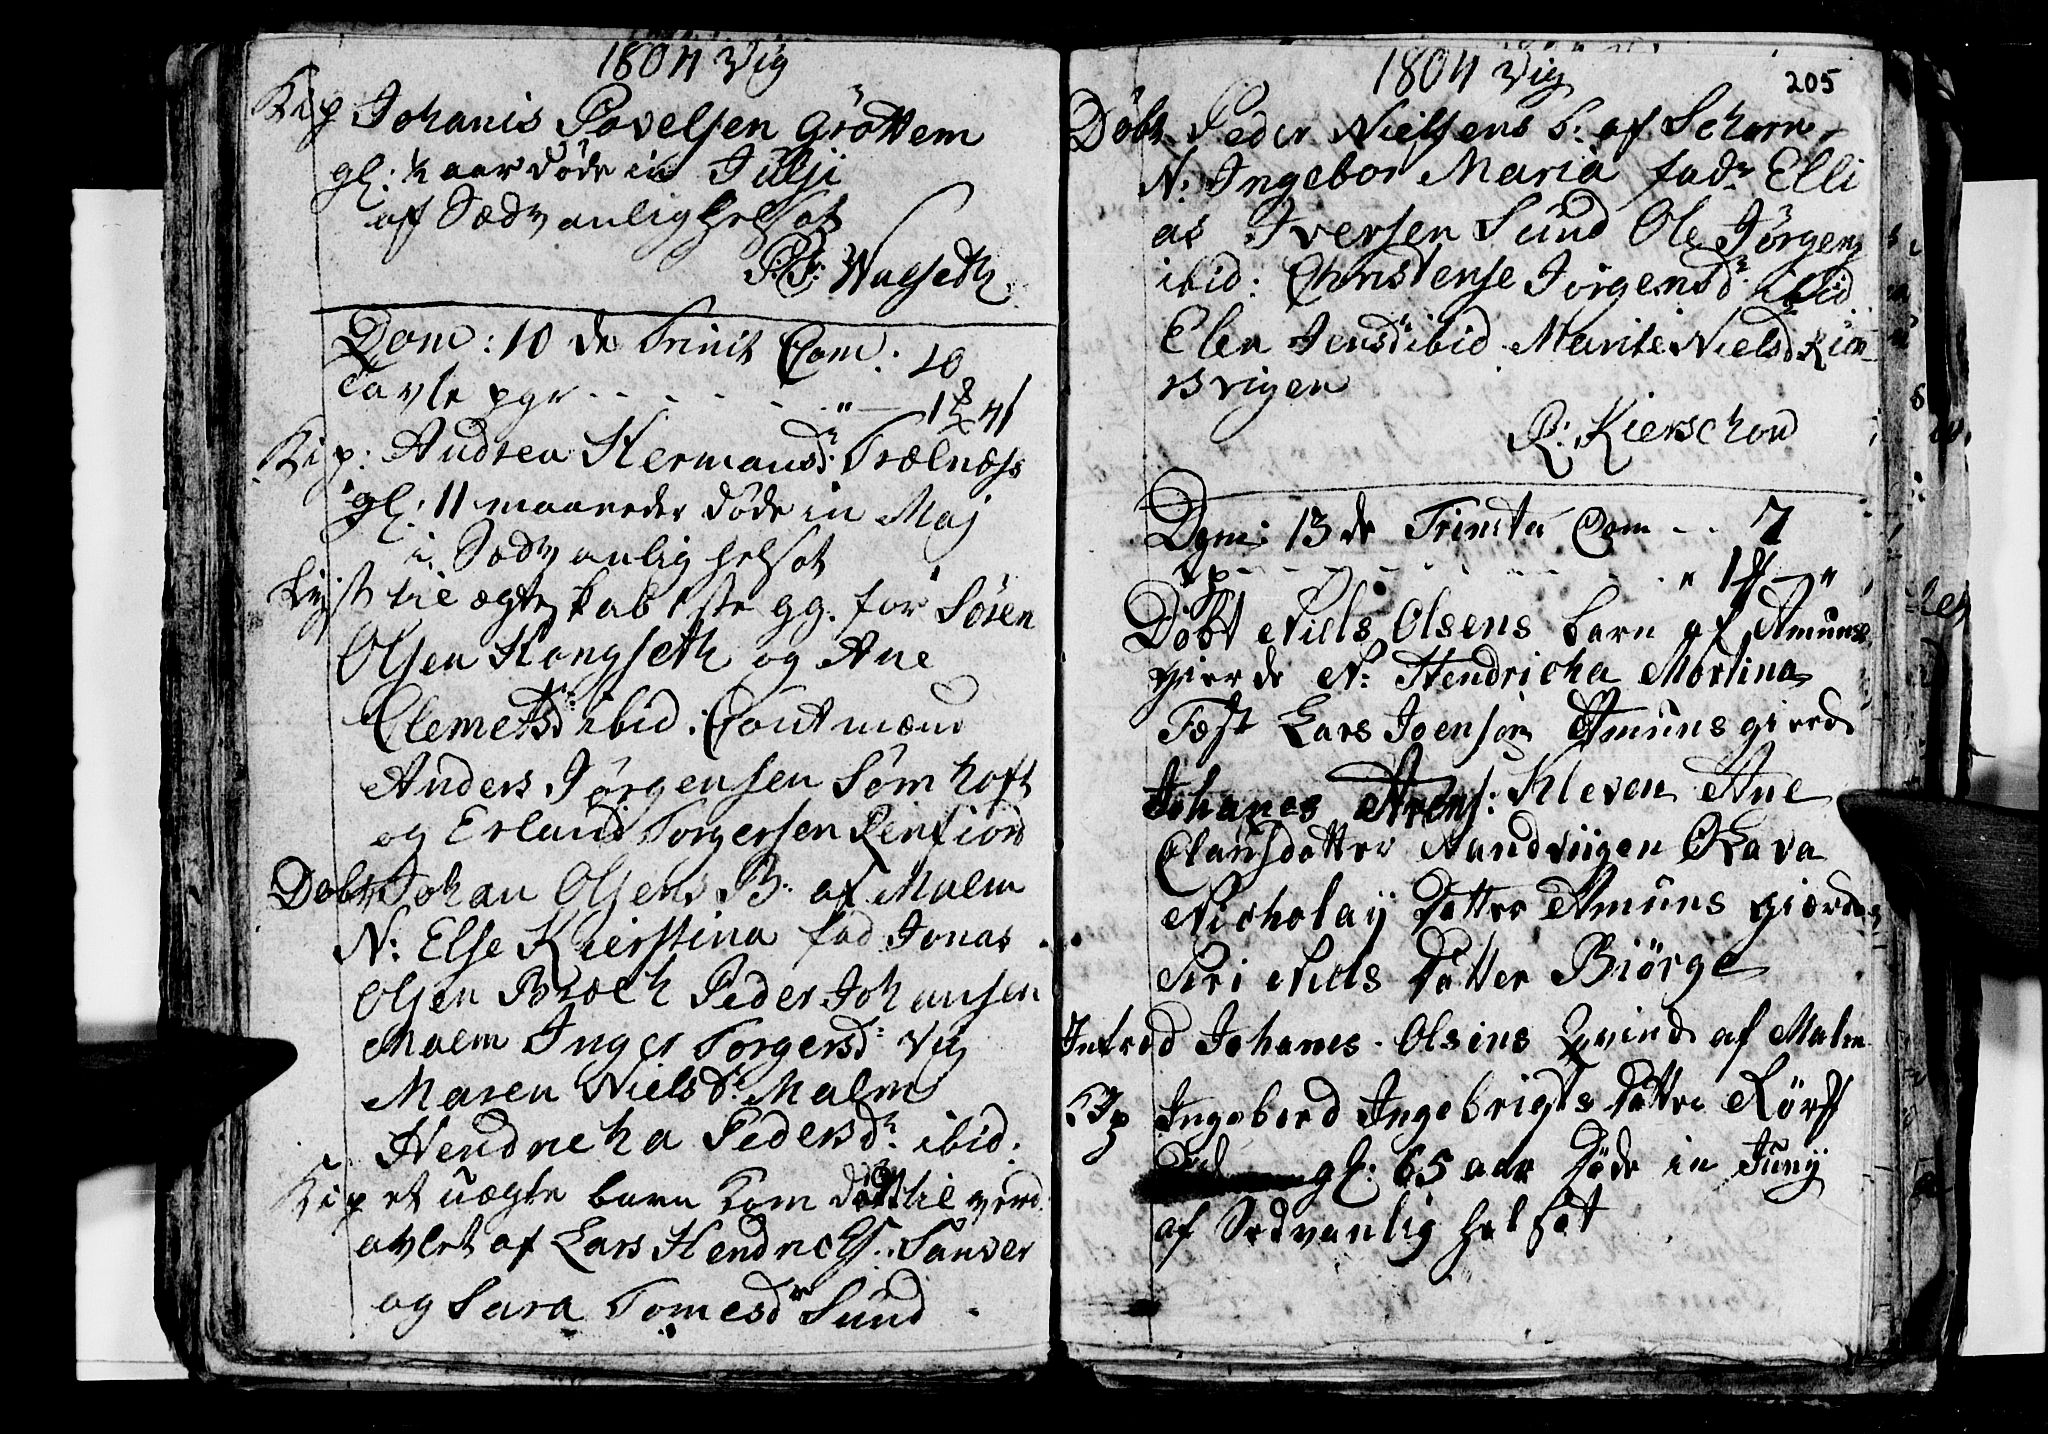 1804 Vig
Kip Johanis Povelsen Grøttem
gl: ½ aar døde in Julji
af Sædvanlig helsot
Walseth
Dom: 10 de Trinit Com: 10
Tavle pgr - - - - - " —
Kip: Andrea Hermansd: Trælnæss
gl: 11 maaneder døde in Maj
i Sædvanlig helsot
Lyst til ægteskab 1ste gg. for Søren
Olsen Hongseth og Ane
Clemetsd ibid. Cautmænd
Anders Jørgensen Sømhoft
og Erland Torgersen
Døbt Johan Olsens B. af Malm
N: Else Kierstina fad Jonas
Olsen Broch Peder Johansen
Malm Inger Torgersd: Vig
Maren Nielsd: Malm
Hendricha Pedersd: ibid:
Kip et uægte barn kom død til verd.
avlet af Lars Hendrichs: Sanver
og Sara Tomesd Sund
1804 Vig 205
Døbt Peder Nielsens b: af Schorn
N: Ingebor Maria fad Elli
as Iversen Sund Ole Jørgens
ibid: Christense Jørgensd ibid
Elen Jensd ibid Marite Nielsd
svigen
R: Kierschou
Dom: 13 de Trinita Com - - 7
Tp - - - - - - "
Døbt Niels Olsens barn af Amuns
gierde N: Hendricha Mortina
Fæst Lars Joensen Amunsgierde
Johanes Arens: Kleven Ane
Clausdatter Nandvigen Olava
Nicholay datter Amunsgierde
Siri Niels datter Biørge
Introd Johanes Olsens Qvinde af Malm
Kp Ingebord Ingebrigts datter
gl: 65 aar døde in Junij
af Sædvanlig helsot